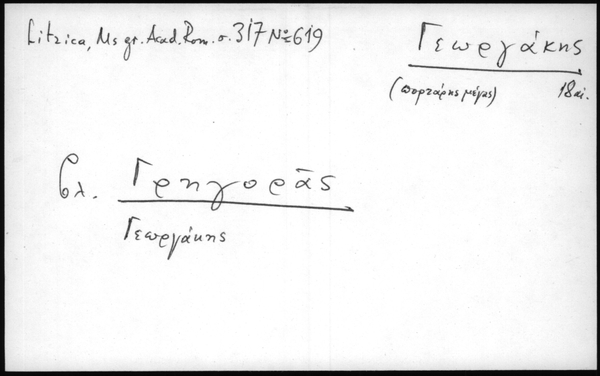 Litzica, Ms gr. Acad. Rom. σ. 317 №619
Γεωργάκης
(πορτάρης μέγας) 18 αἰ.
βλ. Γρηγορᾶς
Γεωργάκης